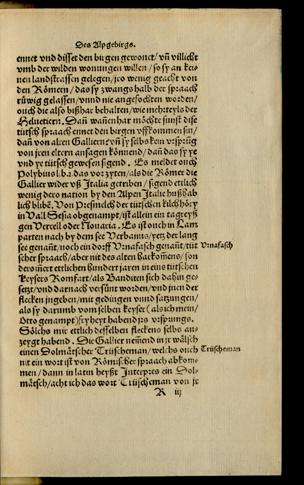 Des Alpgebirgs.
ennet vnd disset den birgen gewonet / vñ villicht
vmb der wilden wonungen willen / so sy an kei-
nen landstrassen gelegen / jro wenig geacht von
den Römern / das sy zwangshalb der spraach
rüwig gelassen / vnnd nie angefochten worden /
ouch die also bißhar behalten / wie mehrteyls der
Heluetiern. Dañ wañenhar möcht sunst dise
tütsch spraach ennet den birgen vffkommen sin /
dañ von alten Galliern vñ sy selbs kein vrsprüg
von jren eltern ansagen könnend / dañ das sy ye
vnd ye tütsch gewesen sigend. Es meldet ouch
Polybius l.2. das vor zyten / als die Römer die
Gallier wider vß Italia getriben / sigend etlich
wenig dero nation by den Alpen Italie hußhäb
lich blibē. Von Presmelch der tütschen kilchhöry
in Vall Sesia obgenampt / ist allein ein tagreyß
gen Vercell oder Nouaria. Es ist ouch in Lam
parten nach by dem see Verbano / yetz der lang
see genañt, noch ein dorff Vrnafasch genañt / tüt
Vrnafasch
scher spraach / aber nit des alten harkomens / son
der vor etlichen hundert jaren in eins tütschen
Keysers Romfart / als Banditen sich dahin ge-
setzt / vnd darnach versünt worden / vnd jnen der
flecken ingeben / mit gedingen vnnd satzungen /
als sy darumb vom selben keyser (als ich mein /
Otto genampt) fryheyt habend jrs vrsprungs.
Sölchs mir ettlich desselben fleckens selbs an-
zeygt habend. Die Gallier neñend in jr wälsch
einen Dolmätscher Trüscheman / welchs ouch
Trüscheman
nit ein wort ist von Römischer spraach abkom-
men / dann in latin heyßt Interpres ein Dol-
mätsch / acht ich das wort Trüscheman von jr
R iij